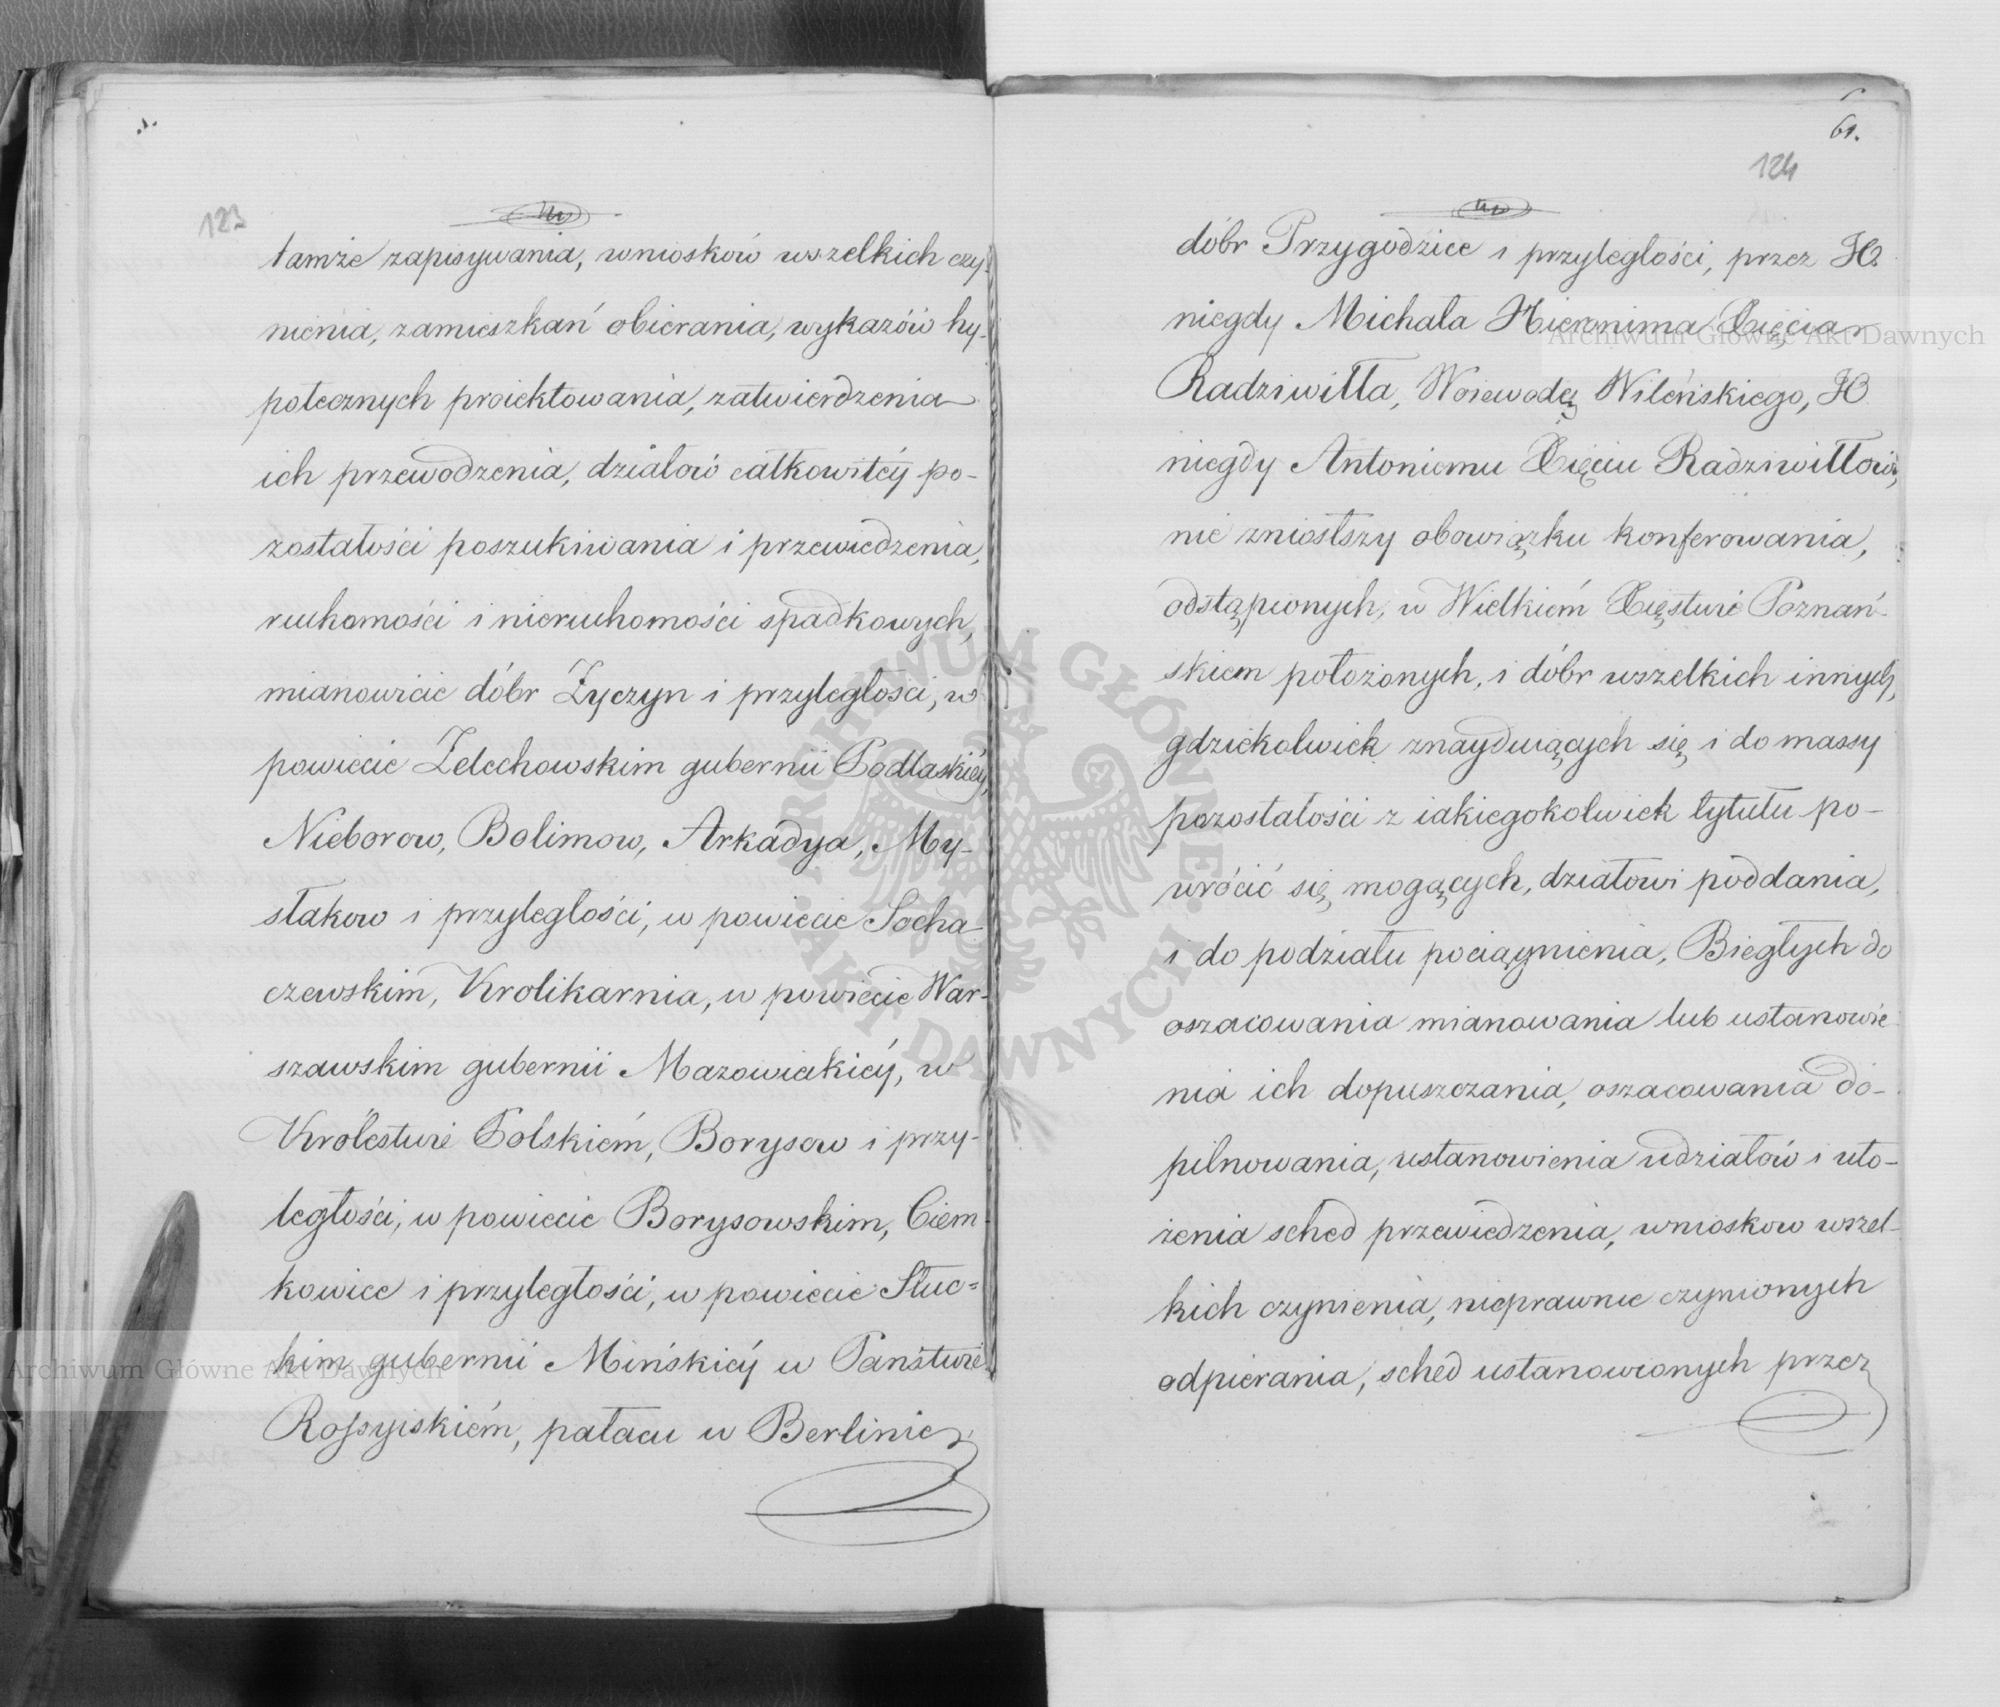 123
tamże zapisywania, wniosków wszelkich czy-
nienia, zamieszkań obierania, wykazów hy-
potecznych proiektowania, zatwierdzenia
ich przewodzenia, działów całkowitéy po-
zostałości poszukiwania i przewiedzenia,
ruchomości i nieruchomości spadkowych,
mianowicie dóbr Życzyn i przyległości, w
powiecie Żelechowskim gubernii Podlaskiéy,
Nieborow, Bolimow, Arkadya, My-
słakow i przyległości, w powiecie Socha-
czewskim, Krolikarnia, w powiecie War-
szawskim gubernii Mazowieckiéy, w
Królestwie Polskiém, Borysow i przy-
ległości, w powiecie Borysowskim, Ciem-
kowice i przyległości, w powiecie Słuc=
kim gubernii Mińskiéy w Państwie
Rossyiskiém, pałacu w Berlinie,
61.
124
dóbr Przygodzice i przyległości, przez JO.
niegdy Michała Hieronima Xięcia
Radziwiłła, Woiewodę Wileńskiego, JO
niegdy Antoniemu Xięciu Radziwiłłowi,
nie zniosłszy obowiązku konferowania,
odstąpionych, w Wielkiém Xięstwie Poznań-
skiem położonych, i dóbr wszelkich innych,
gdziekolwiek znayduiących się i do massy
pozostałości z iakiegokolwiek tytułu po-
wrócić się mogących, działowi poddania,
i do podziału pociągnienia, Biegłych do
oszacowania mianowania lub ustanowie-
nia ich dopuszczania, oszacowania do-
pilnowania, ustanowienia udziałów i uło-
żenia sched przewiedzenia, wniosków wszel-
kich czynienia, nieprawnie czynionych
odpierania, sched ustanowionych przez
Archiwum Główne Akt Dawnych
Archiwum Główne Akt Dawnych
ARCHIWUM GŁÓWNE · AKT DAWNYCH ·